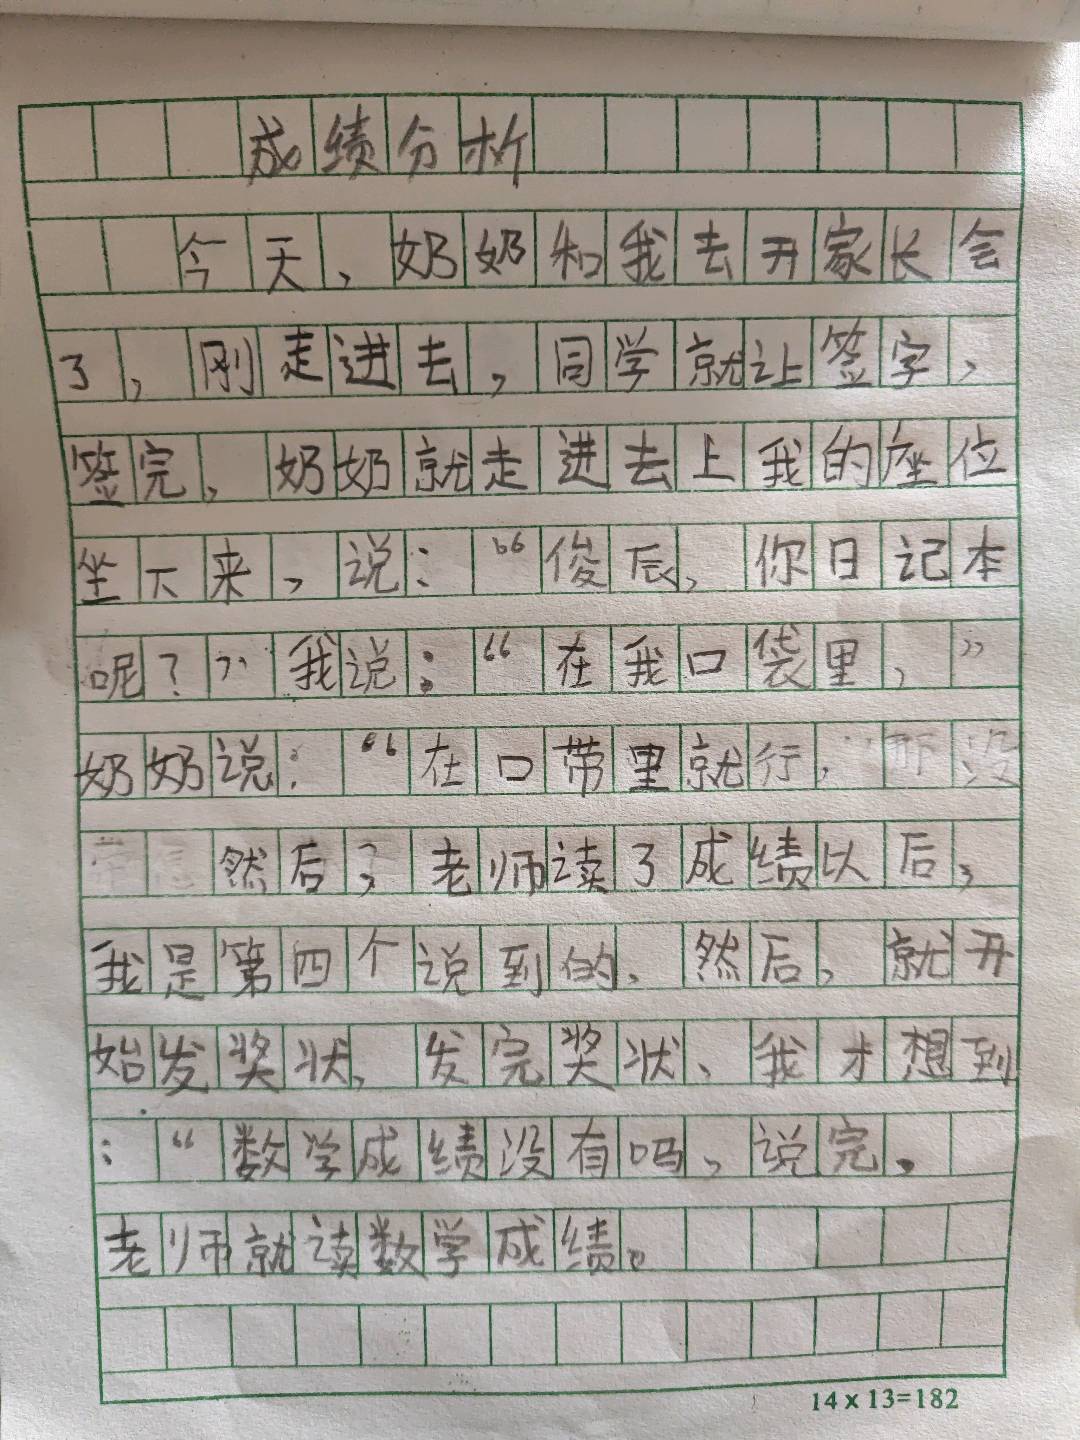 成绩分析
今天，奶奶和我去开家长会
了，刚走进去，同学就让签字，
签完，奶奶就走进去上我的座位
坐下来，说：“俊辰，你日记本
呢？”我说：“在我口袋里，”
奶奶说：“在口带里就行，
然后，老师读了成绩以后，
我是第四个说到的，然后，就开
始发奖状，发完奖状、我才想到
：“数学成绩没有吗，说完。
老师就读数学成绩。
14×13=182